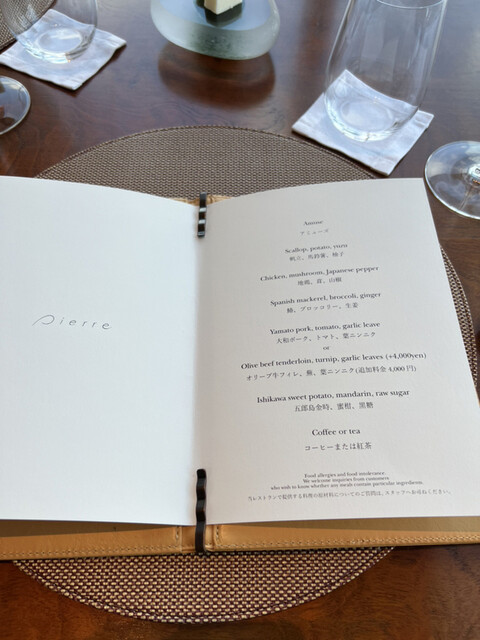 Pierre
Amuse
アミューズ
Scallop, potato, yuzu
帆立、馬鈴薯、柚子
Chicken, mushroom, Japanese pepper
地鶏、茸、山椒
Spanish mackerel, broccoli, ginger
鰆、ブロッコリー、生姜
Yamato pork, tomato, garlic leave
大和ポーク、トマト、葉ニンニク
or
Olive beef tenderloin, turnip, garlic leaves (+4,000yen)
オリーブ牛フィレ、蕪、葉ニンニク(追加料金 4,000 円)
Ishikawa sweet potato, mandarin, raw sugar
五郎島金時、蜜柑、黒糖
Coffee or tea
コーヒーまたは紅茶
Food allergies and food intolerance
We welcome inquiries from customers
who wish to know whether any meals contain particular ingredients.
当レストランで提供する料理の原材料についてのご質問は、スタッフへお尋ねください。